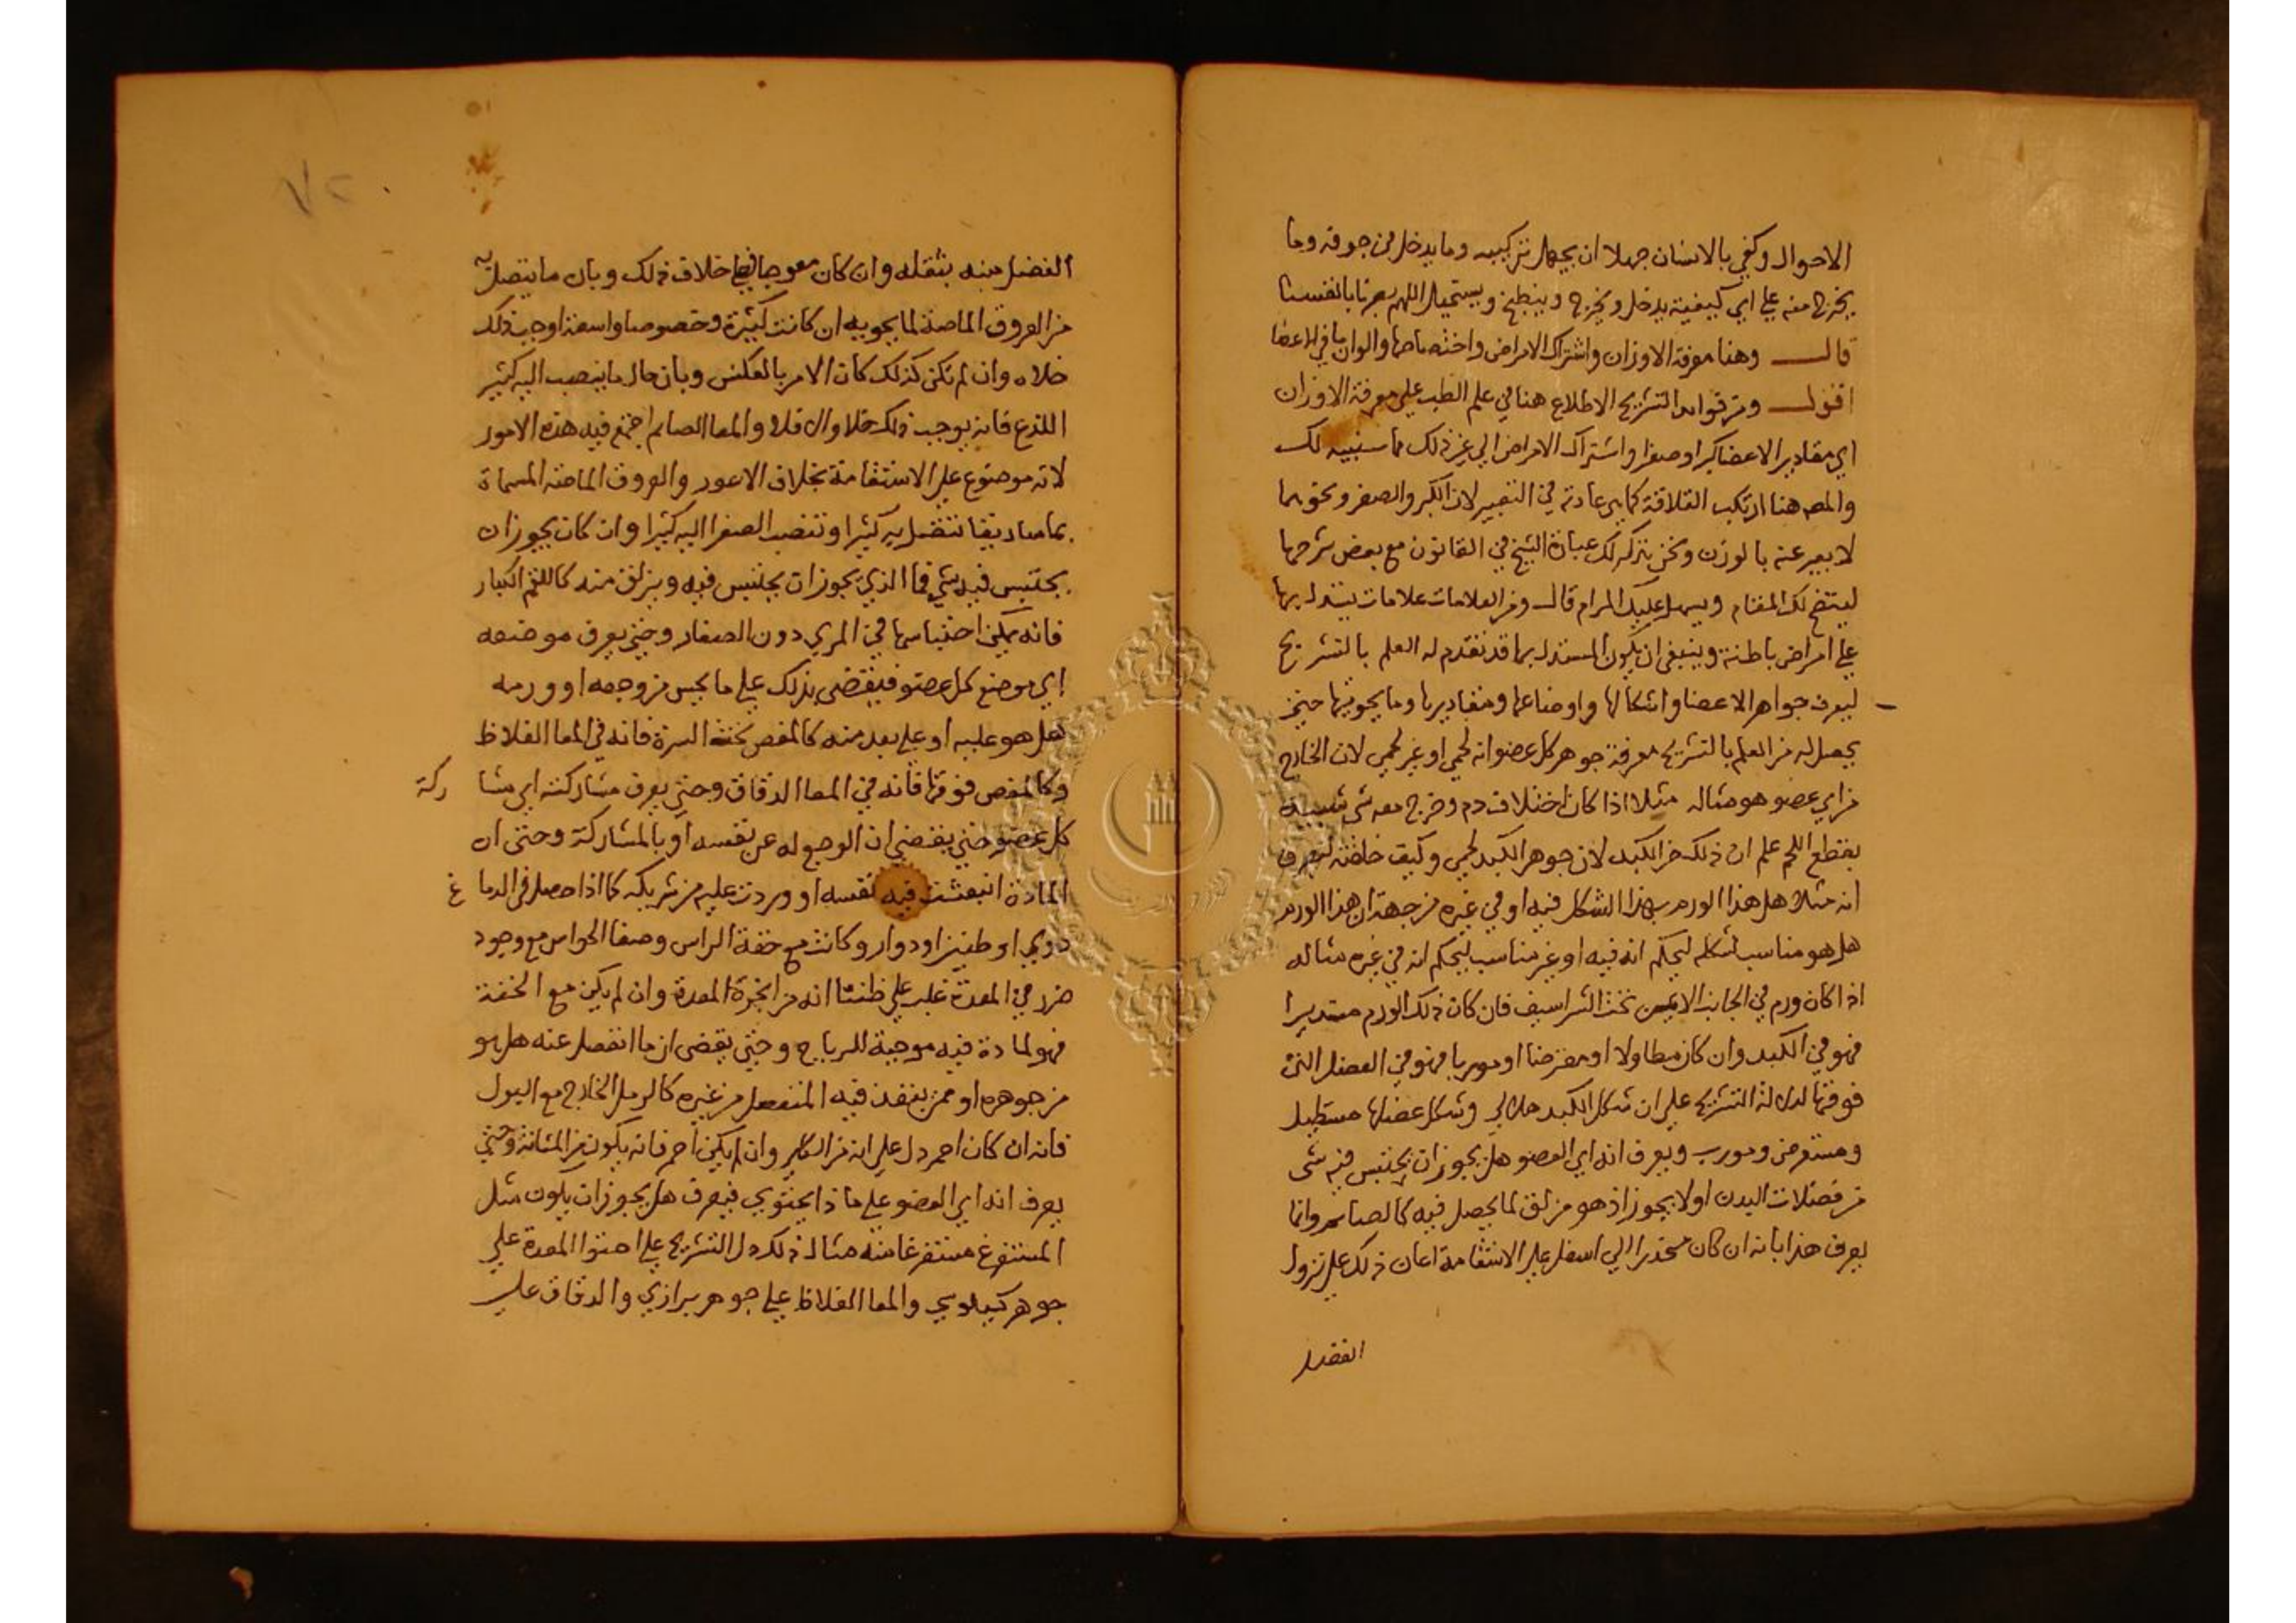 الاحوال وكفي بالانسان جهلا ان يجهل تركيبه وما يدخل من جوفه وما
يخرج منه علي اي كيفية يدخل ويخرج وينطبخ ويستحيل اللهم بصرنا بانفسنا
قال وهنا معرفة الاوزان واشتراك الامراض واختصاصها والوان باقي الاعضا
اقول ومن فوايد التشريح الاطلاع هنا في علم الطب علي معرفة الاوزان
اي مقادير الاعضا كبرا وصغرا واشتراك الامراض الي غير ذلك مما سنبينه لك
والمص هنا ارتكب القلاقة كما هي عادته في التعبير لان الكبر والصغر ونحوهما
لا يعبر عنه بالوزن ونحن نتركه لك عبارة الشيخ في القانون مع بعض شرحها
ليتضح لك المقام ويسهل عليك المرام قال ومن العلامات علامات يستدل بها
علي امراض باطنة وينبغي ان يكون المستدل بها قد تقدم له العلم بالتشريح
ليعرف جواهر الاعضا واشكالها واوضاعها ومقاديرها وما يحويها حينئذ
يحصل له من العلم بالتشريح معرفة جوهر كل عضو انه لحمي او غير لحمي لان الخارج
من اي عضو هو مثاله مثلا اذا كان اختلاف دم وخرج معه شي شبيه
بقطع اللحم علم ان ذلك من الكبد لان جوهر الكبد لحمي وكيف خلقته ليعرف
انه مثلا هل هذا الورم بهذا الشكل فيه او في غيره من جهة ان هذا الورم
هل هو مناسب لشكله ليحكم انه فيه او غير مناسب ليحكم انه في غيره مثاله
اذا كان ورم في الجانب الايمن تحت الشراسيف فان كان ذلك الورم مستديرا
فهو في الكبد وان كان مطاولا او معترضا او موربا فهو في العضل التي
فوقها لدلالة التشريح علي ان شكل الكبد هلالي وشكل عضلها مستطيل
ومستعرض ومورب ويعرف انه اي العضو هل يجوز ان يحتبس فيه شي
من فضلات البدن اولا يجوز اذ هو مزلق لما يحصل فيه كالصايم وانما
يعرف هذا بانه ان كان منحدرا الي اسفل علي الاستقامة اعان ذلك علي نزول
الفضل
الفضل منه بثقله وان كان معوجا فيها خلاف ذلك وبان ما يتصل به
من العروق الماصة لما يحويه ان كانت كثيرة وخصوصا واسعة اوجب ذلك
خلاه وان لم تكن كذلك كان الامر بالعكس وبان حال ما ينصب اليه كثير
اللذع فانه يوجب ذلك خلا والا فلا والمعا الصايم اجتمع فيه هذه الامور
لانه موضوع علي الاستقامة بخلاف الاعور والعروق الماصة المسماة
بماساريقا تتصل به كثيرا وتنصب الصفرا اليه كثيرا وان كان يجوز ان
يحتبس فيه شي فما الذي يجوز ان يحتبس فيه ويزلق منه كاللقم الكبار
فانه يمكن احتباسها في المري دون الصغار وحتي يعرف موضعه
اي موضع كل عضو فيقضي بذلك علي ما يحس من وجعه او ورمه
هل هو عليه او علي بعد منه كالمغص تحت السرة فانه في المعا الغلاظ
وكالمغص فوقها فانه في المعا الدقاق وحتي يعرف مشاركته اي مشا ركة
كل عضو حتي يقضي ان الوجع له عن نفسه او بالمشاركة وحتي ان
المادة انبعثت فيه نفسه او وردت عليه من شريكه كما اذا حصل في الدما غ
دوي او طنين او دوار وكانت مع خفة الراس وصفا الحواس مع وجود
ضرر في المعدة غلب علي ظننا انه من ابخرة المعدة وان لم يكن مع الخفة
فهو لمادة فيه موجبة للرياح وحتي يقضي ان ما انفصل عنه هل هو
من جوهره او ممن ينفذ فيه المنفصل من غيره كالرمل الخارج مع البول
فانه ان كان احمر دل علي انه من الكلي وان لم يكن احمر فانه يكون من المثانة وحتي
يعرف انه اي العضو علي ماذا يحتوي فيعرف هل يجوز ان يكون مثل
المستفرغ مستفرغا منه مثال ذلك دل التشريح علي احتوا المعدة علي
جوهر كيلوسي والمعا الغلاظ علي جوهر برازي والدقاق علي